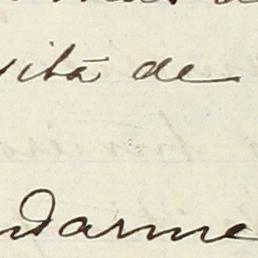 vità de
ndarme